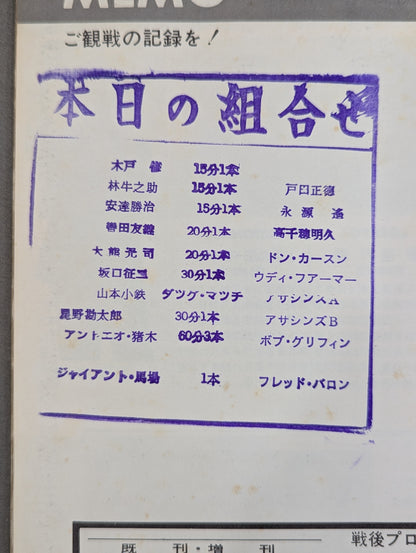 MEMO
ご観戦の記録を！
本日の組合せ
木戸 修 15分1本
林牛之助 15分1本 戸口正徳
安達勝治 15分1本 永源 遙
豊田友継 20分1本 高千穂明久
大熊元司 20分1本 ドン・カースン
坂口征二 30分1本 ウディ・フアーマー
山本小鉄 タッグ・マッチ アサシンズA
星野勘太郎 30分1本 アサシンズB
アントニオ・猪木 60分3本 ボブ・グリフィン
ジャイアント・馬場 1本 フレッド・バロン
戦後プロ
既刊・増刊